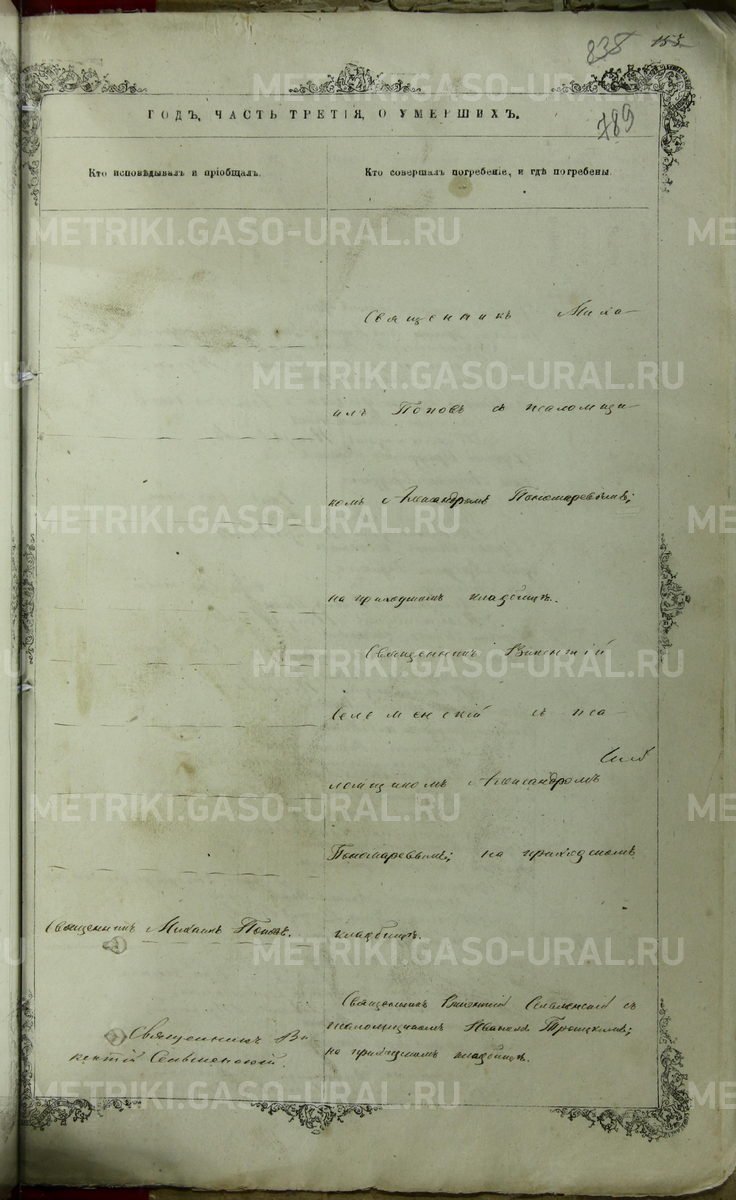 835 153
ГОДЪ, ЧАСТЬ ТРЕТІЯ, О УМЕРШИХЪ.
789
Кто исповѣдывалъ и пріобщалъ.
Кто совершалъ погребеніе, и гдѣ погребены.
Священникъ Миха-
илъ Поповъ съ псаломщи-
комъ Александромъ Пономаревымъ;
на приходскомъ кладбищѣ.
Священникъ Викентій
съ пса-
ломщикомъ Александромъ
Пономаревымъ; на приходскомъ
кладбищѣ.
Священникъ Михаилъ Поповъ.
Священникъ Викентій съ
псаломщикомъ Иваномъ Троицкимъ;
на приходскомъ кладбищѣ.
Священникъ Ви-
кентій
METRIKI.GASO-URAL.RU